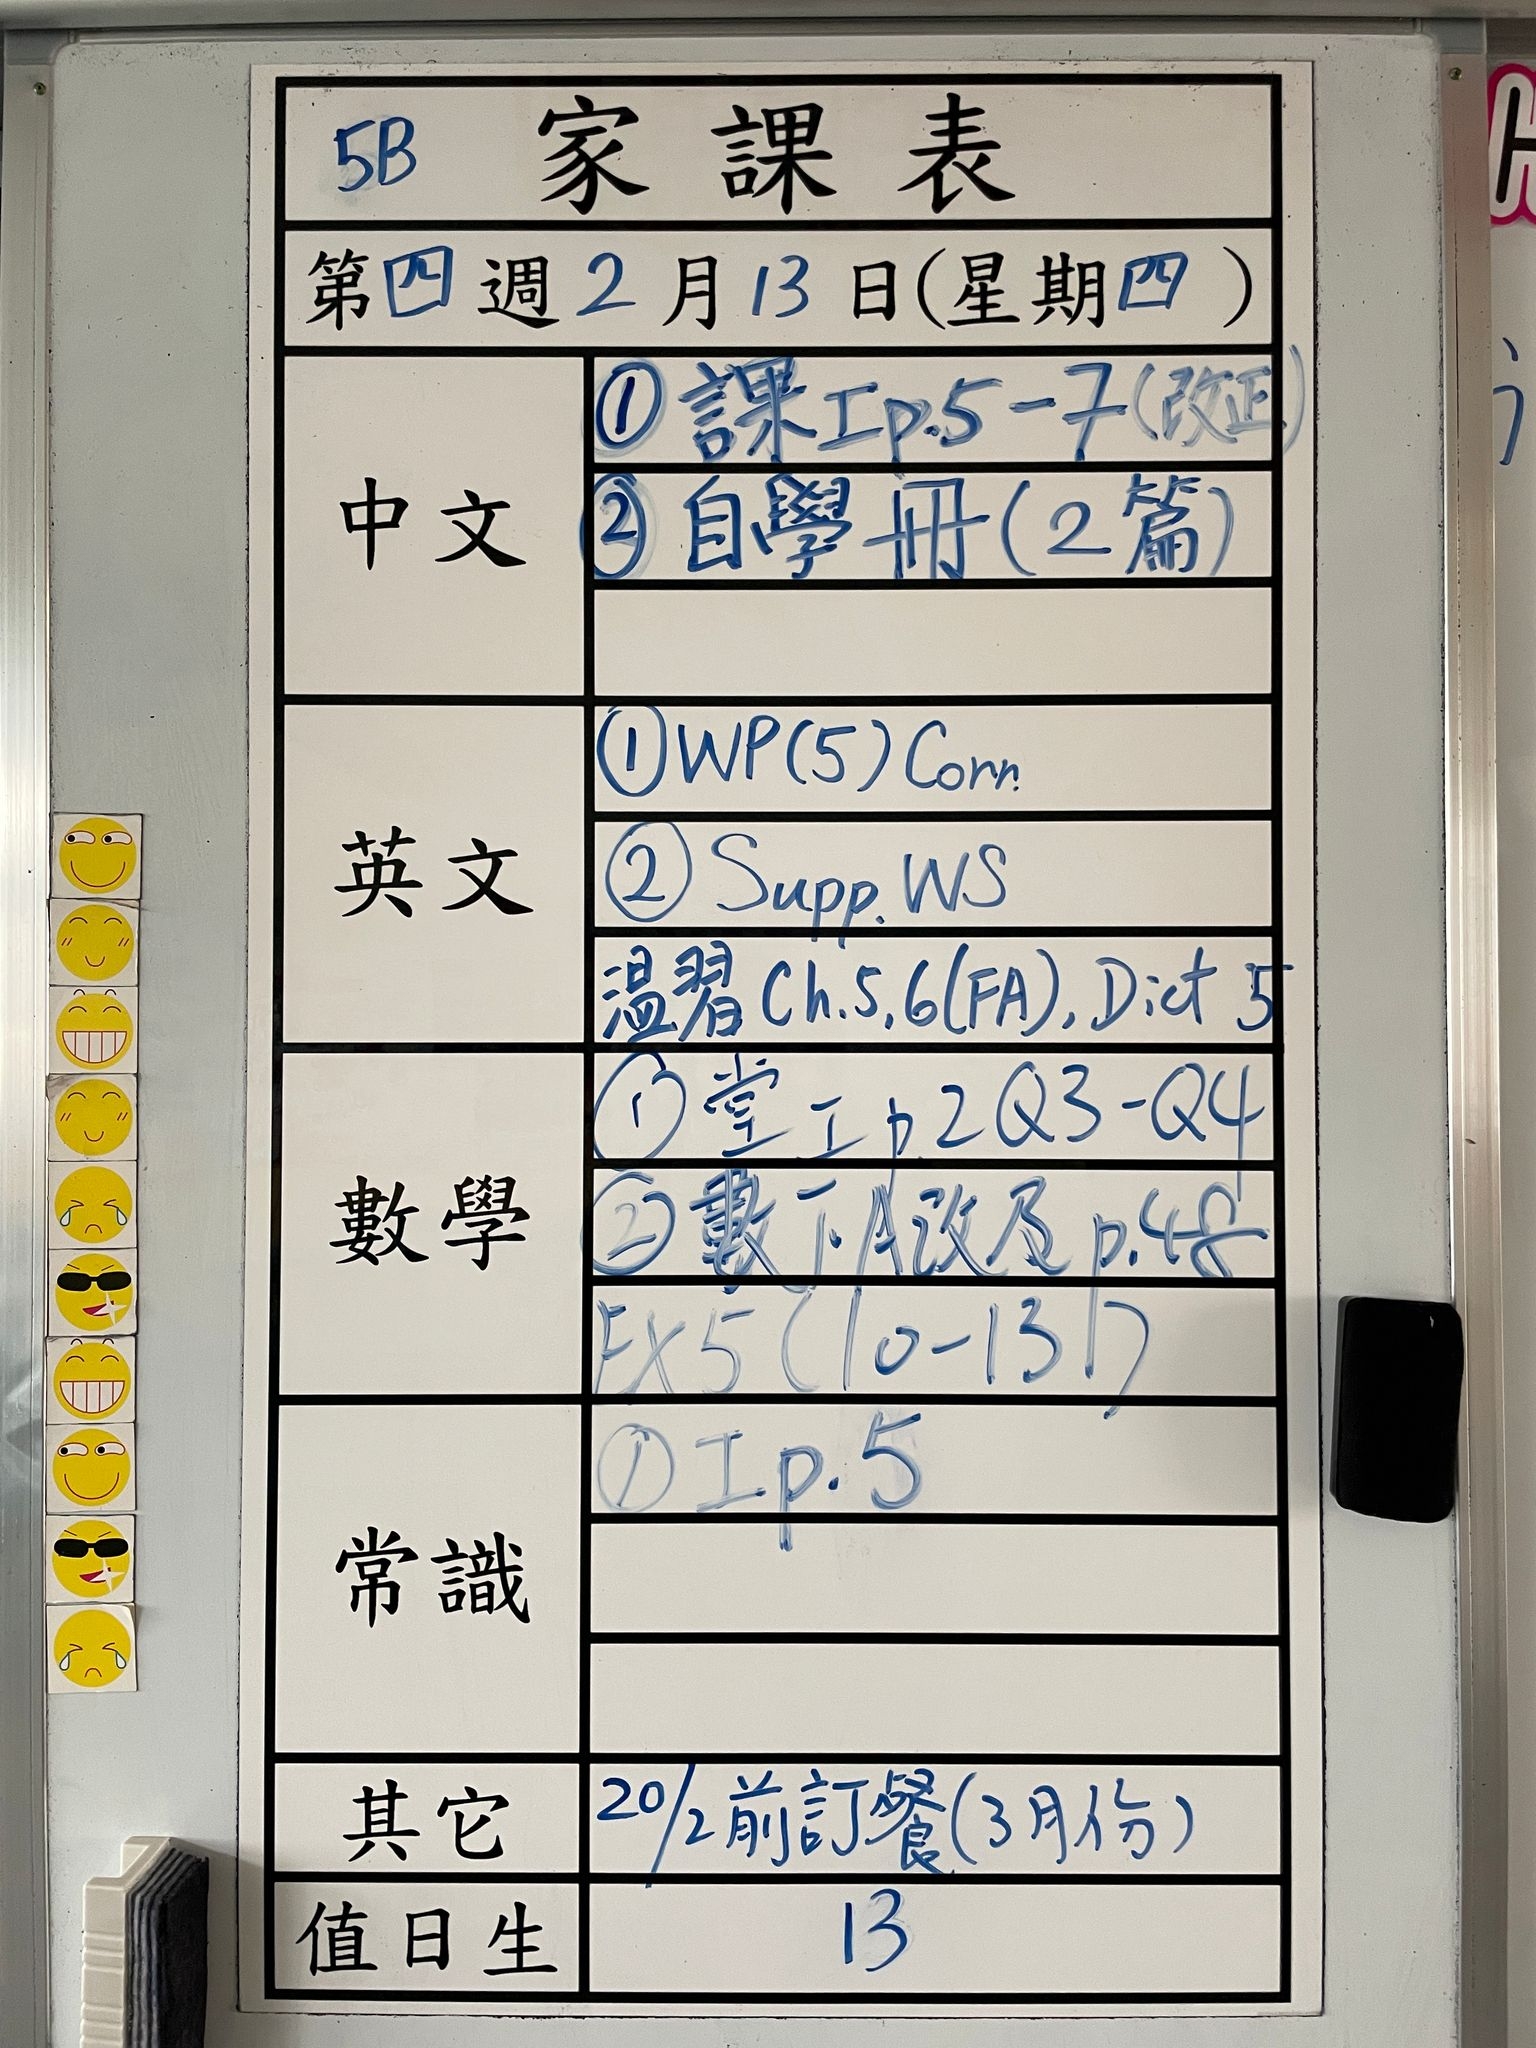 5B 家課表
第四週2月13日(星期四)
中文
①課工p.5-7(改正)
②自學冊(2篇)
英文
①WP(5)Corr.
②Supp.WS
溫習Ch.5,6(FA),Dict 5
數學
①堂工p.2Q3-Q4
②數下A改及p.48
EX5(10-13)
常識
①工p.5
其它
20/2前訂餐(3月份)
值日生
13